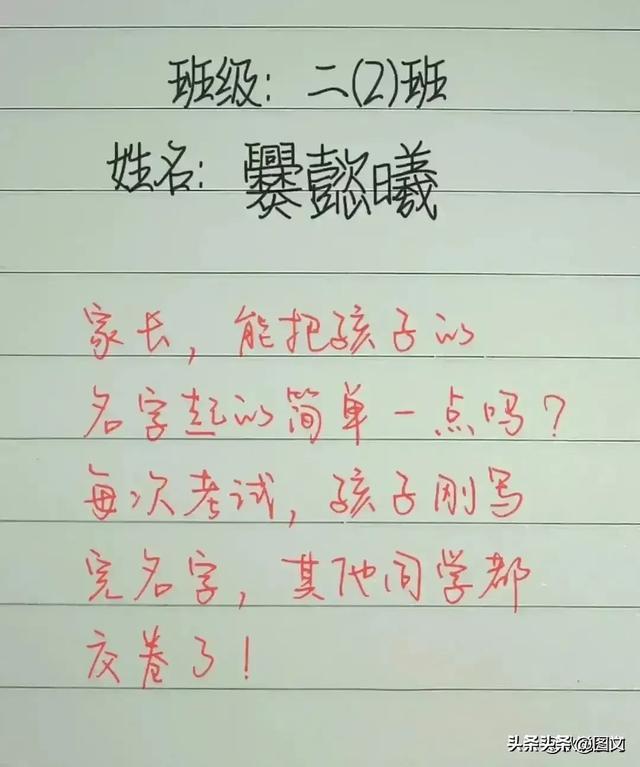 班级：二(2)班
姓名：爨懿曦
家长，能把孩子的
名字起的简单一点吗？
每次考试，孩子刚写
完名字，其他同学都
交卷了！
头条 @图文